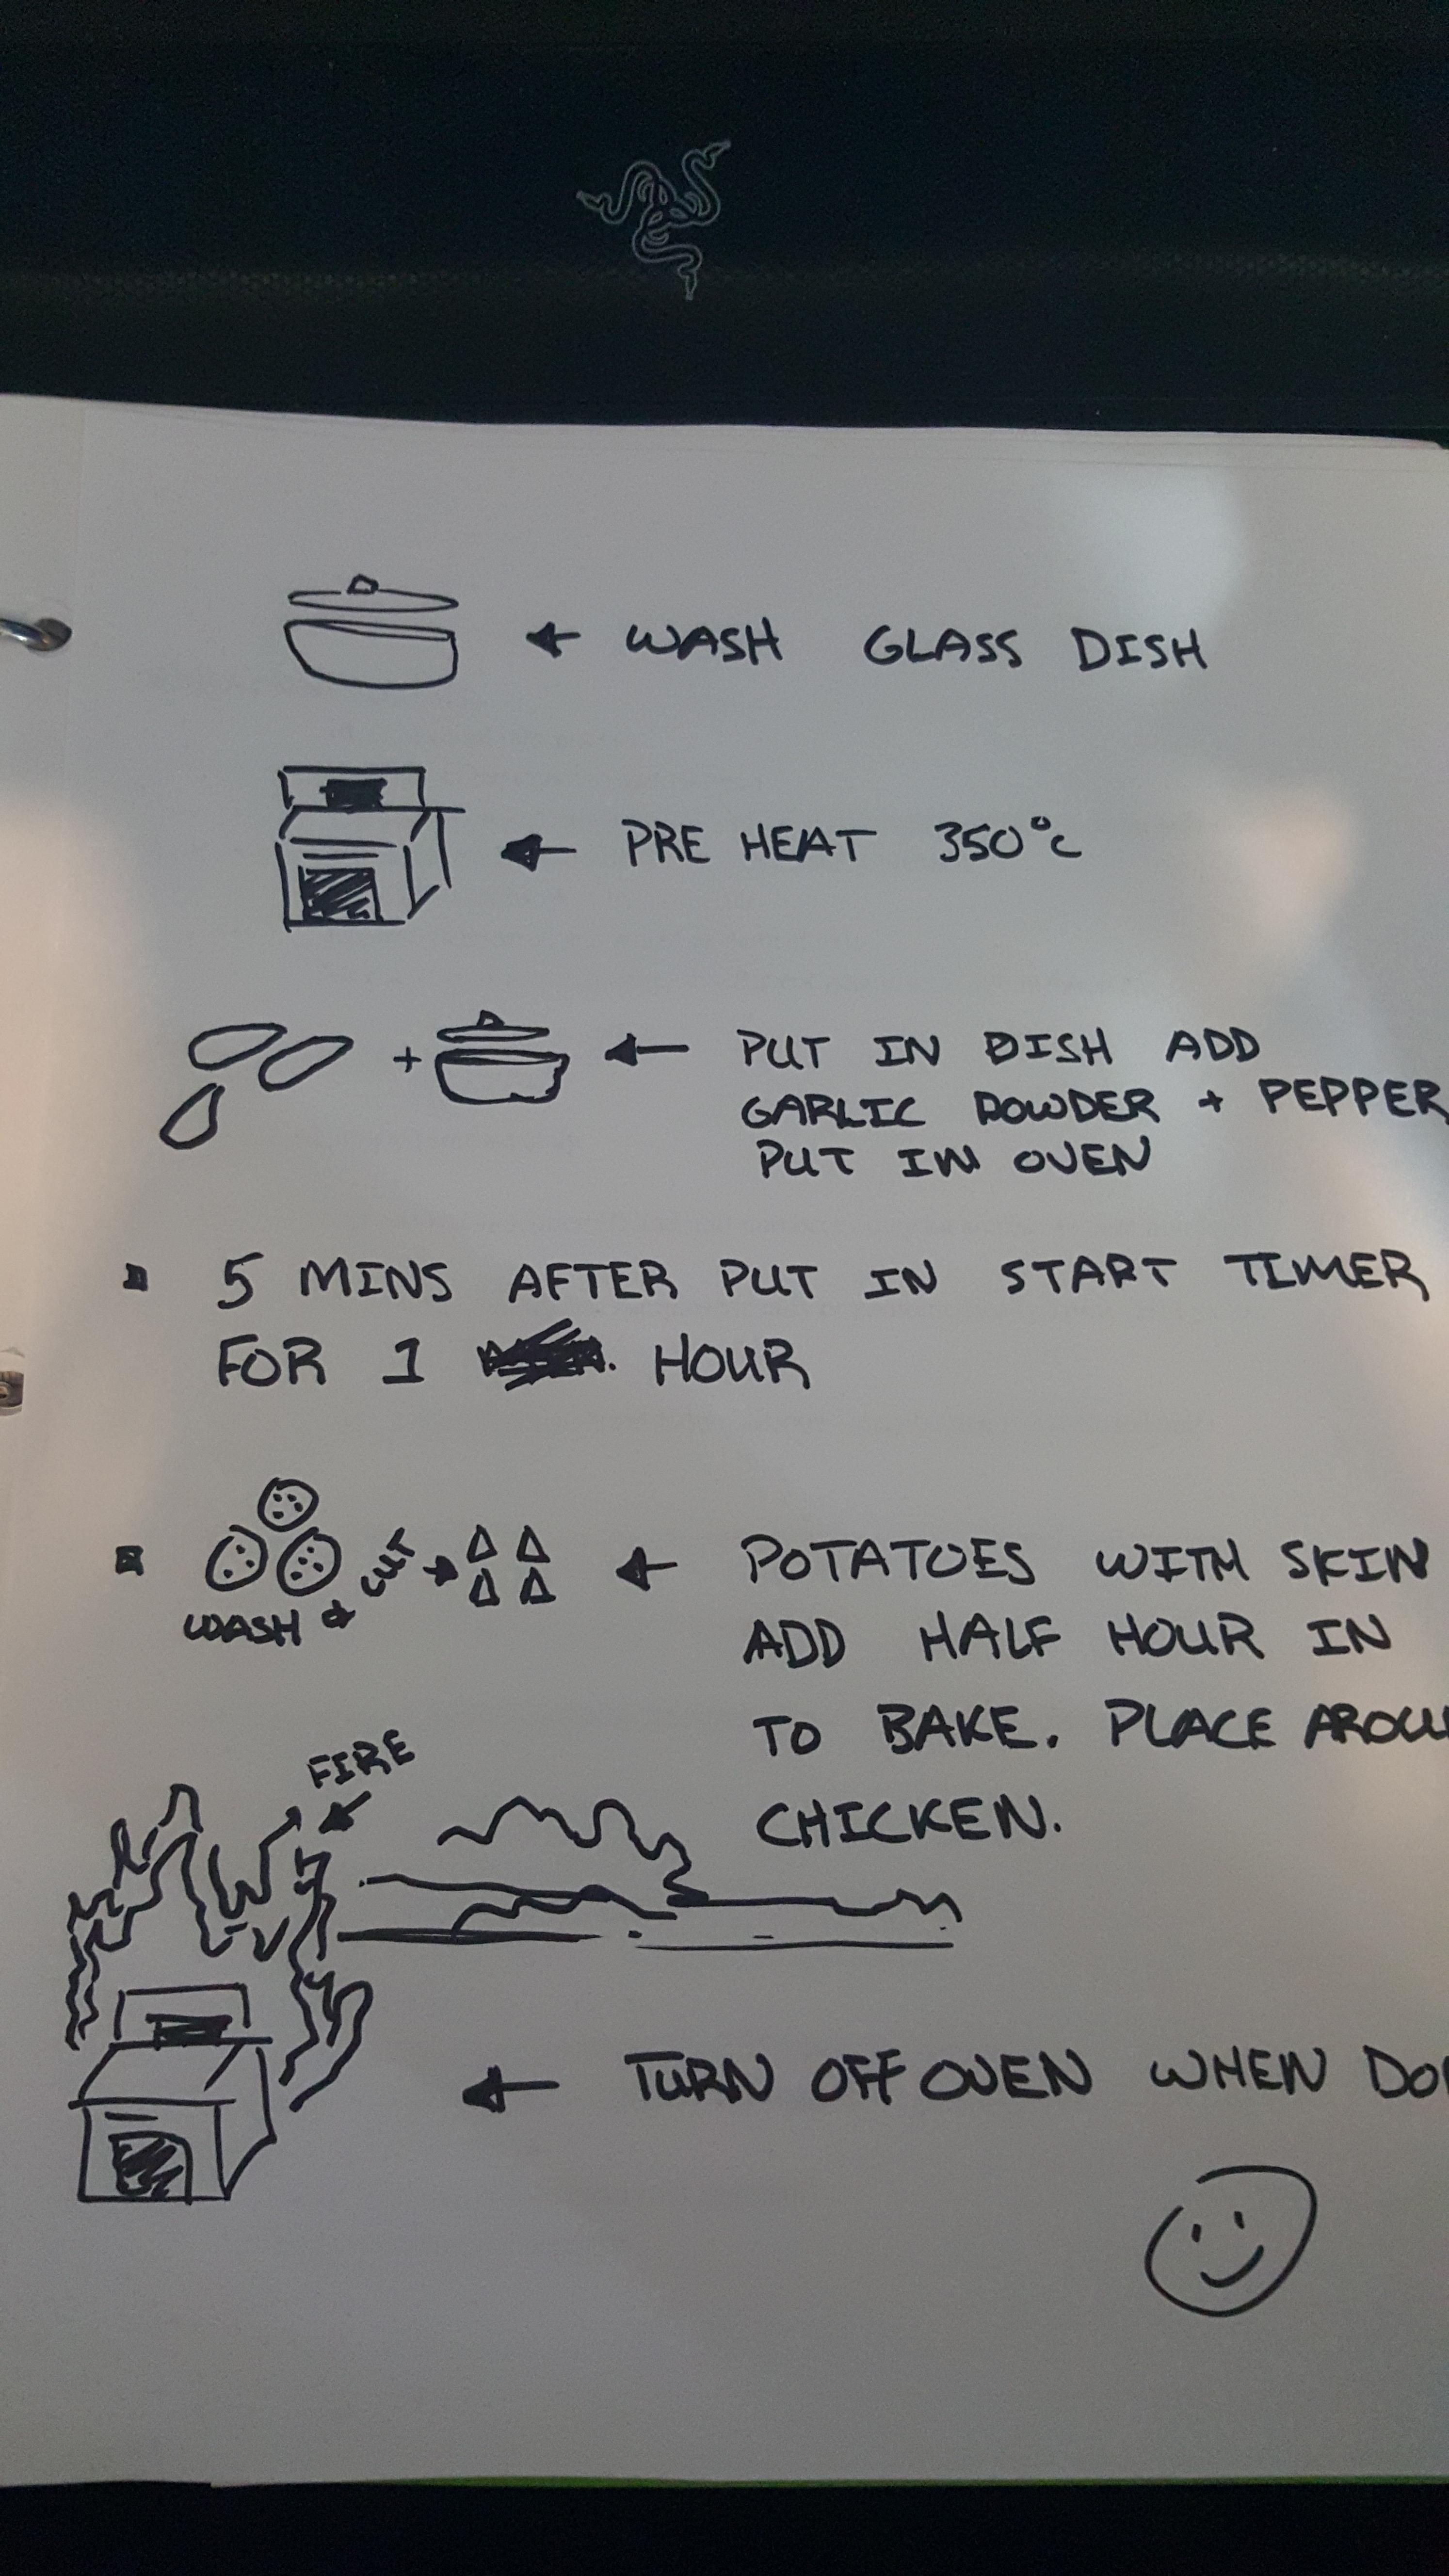 ← WASH GLASS DISH
← PRE HEAT 350°C
+ ← PUT IN DISH ADD
GARLIC POWDER + PEPPER,
PUT IN OVEN
5 MINS AFTER PUT IN START TIMER
FOR 1 HOUR
WASH & CUT → ← POTATOES WITH SKIN
ADD HALF HOUR IN
TO BAKE. PLACE AROU
CHICKEN.
FIRE
← TURN OFF OVEN WHEN DO